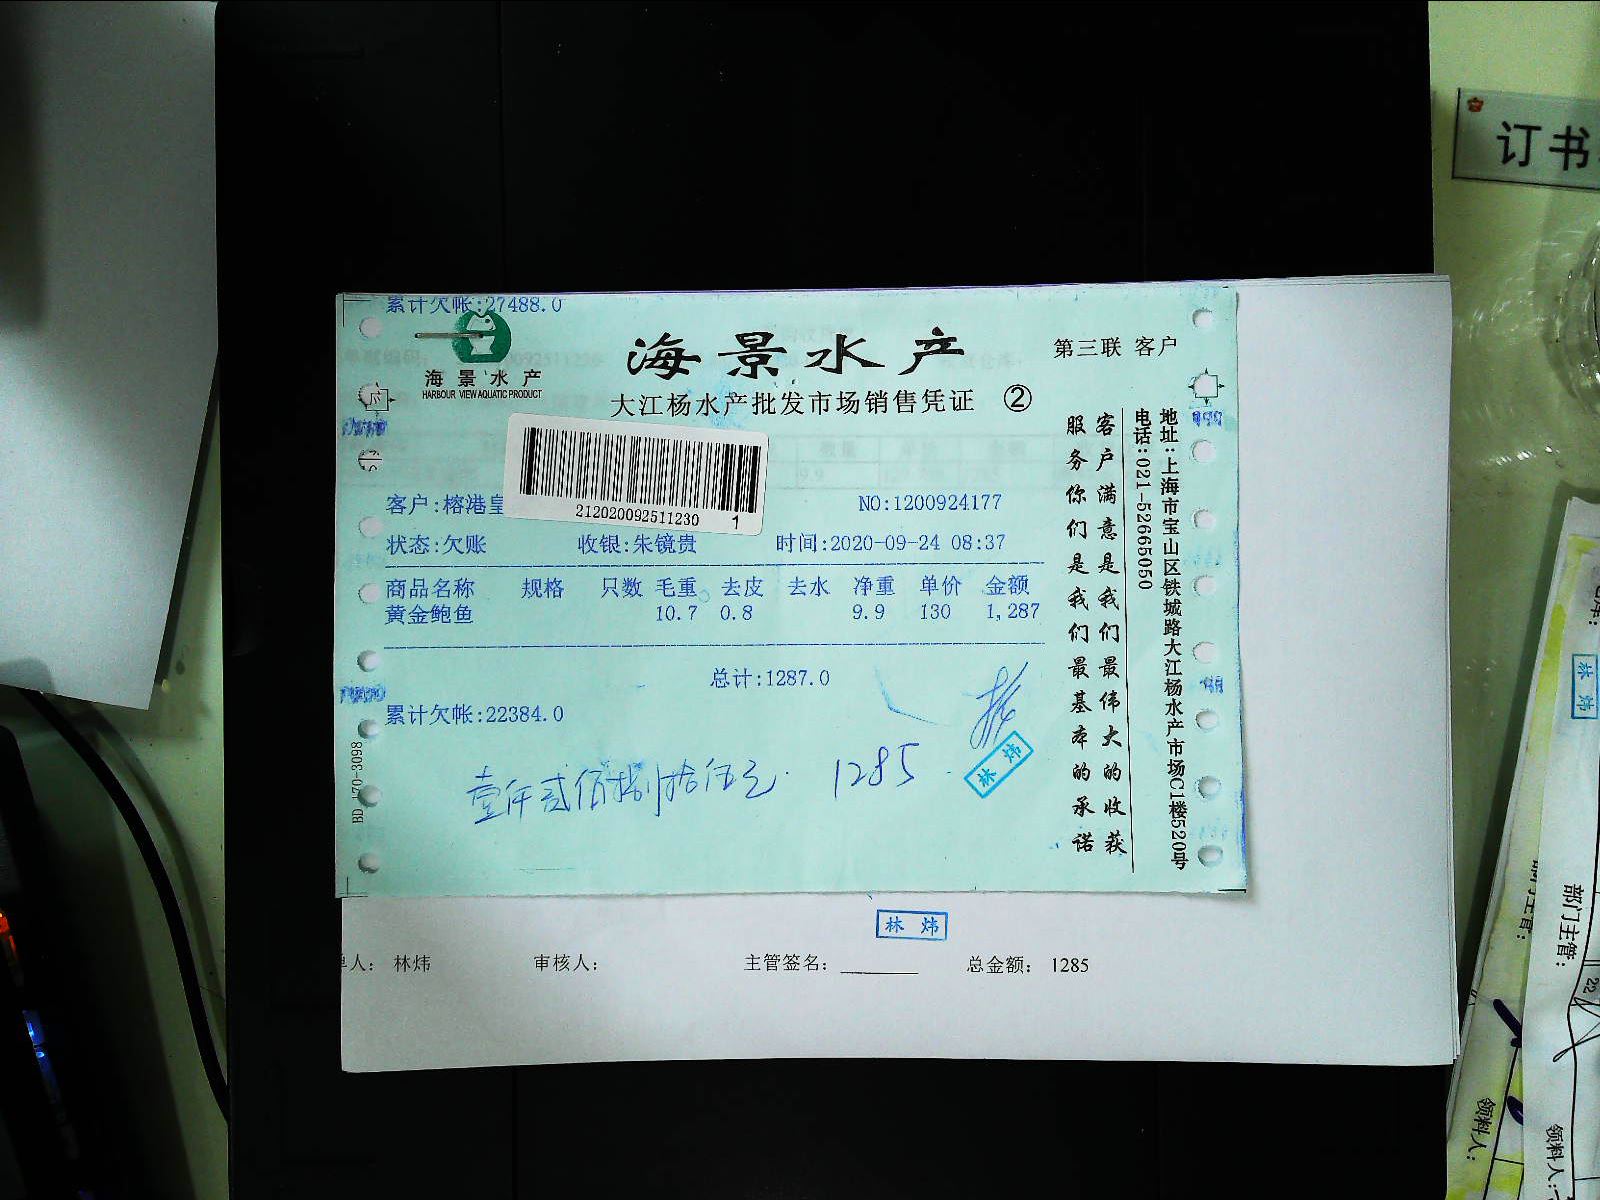 订书
累计欠帐:27488.0
海景水产
HARBOUR VIEW AQUATIC PRODUCT
海景水产
第三联 客户
大江杨水产批发市场销售凭证 ②
212020092511230 1
客户:榕港皇
NO:1200924177
状态:欠账 收银:朱镜贵 时间:2020-09-24 08:37
商品名称 规格 只数 毛重 去皮 去水 净重 单价 金额
黄金鲍鱼 10.7 0.8 9.9 130 1,287
总计:1287.0
累计欠帐:22384.0
壹仟贰佰捌拾伍元 1285
林炜
客户满意是我们最伟大的收获
服务你们是我们最基本的承诺
地址:上海市宝山区铁城路大江杨水产市场C1楼520号
电话:021-52665050
BD 170-3098
林炜
单人: 林炜 审核人: 主管签名: 总金额: 1285
林炜
部门主管:
22
领料人:
领料人: